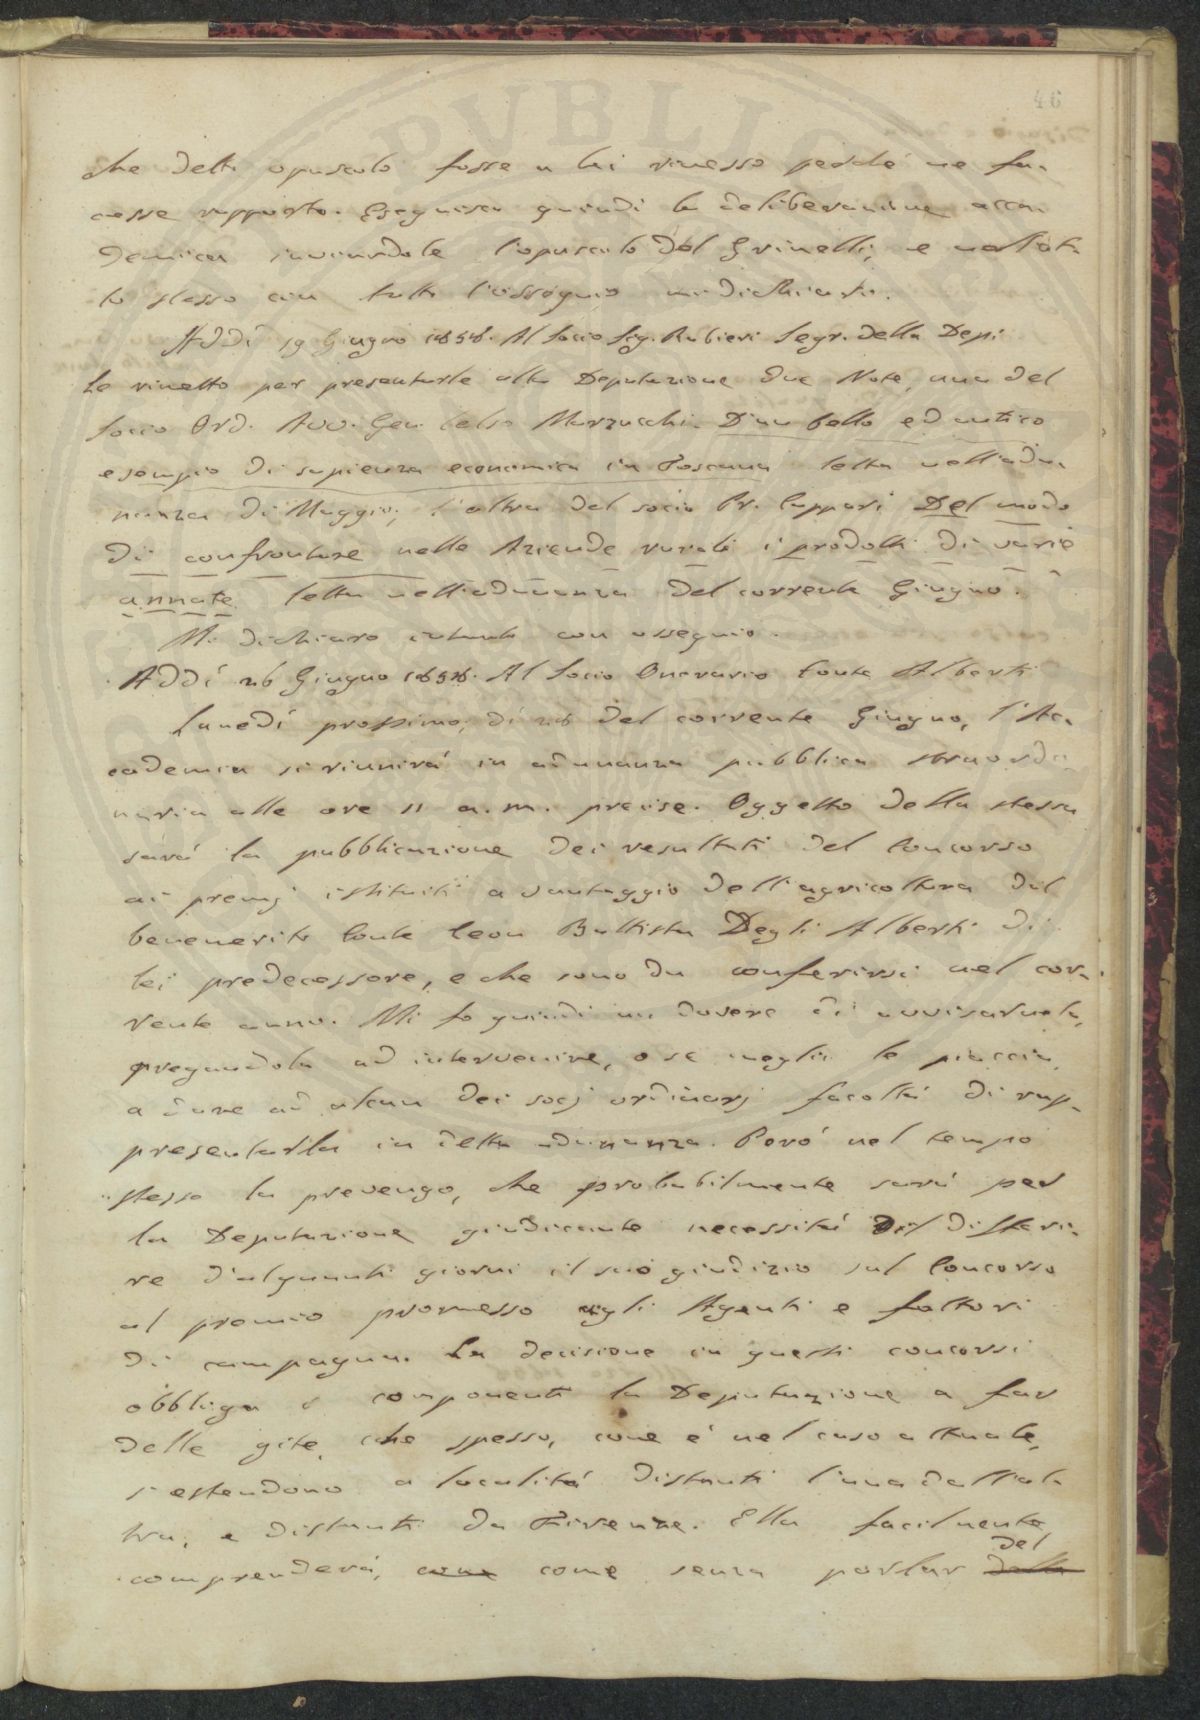 46
che detto opuscolo fosse a lei rimesso perché ne fa-
cesse rapporto. Eseguisco quindi la deliberazione acca-
demica inviandole l'opuscolo del Grinelli, e nell'at-
to stesso con tutto l'ossequio mi dichiaro.
Addí 19 Giugno 1858. Al Socio Sig. Rubieri Segr. della Dep:
Le rimetto per presentarle alla Deputazione due Note, una del
Socio Ord. Avv. Gen. Celso Marzucchi. D'un bello ed antico
esempio di sapienza economica in Toscana letta nell'adu-
nanza di Maggio; l'altra del socio Pr. Cuppari Del modo
di confrontare nelle Aziende rurali i prodotti di varie
annate letta nell'adunanza del corrente Giugno.
Mi dichiaro intanto con ossequio.
Addí 26 Giugno 1858. Al Socio Onorario Conte Alberti
Lunedí prossimo, dí 28 del corrente Giugno, l'Ac-
cademia si riunirá in adunanza pubblica straordi-
naria alle ore 11 a.m. precise. Oggetto della stessa
sará la pubblicazione dei resultati del Concorso
ai premj istituiti a vantaggio dell'agricoltura dal
benemerito Conte Leon Battista Degli Alberti di
lei predecessore, e che sono da conferirsi nel cor-
rente anno. Mi fo quindi un dovere di avvisarnela,
pregandola ad intervenire, o se meglio le piaccia,
a dare ad alcun dei socj ordinarj facoltá di rap-
presentarla in detta adunanza. Peró nel tempo
stesso la prevengo, che probabilmente sará per
la Deputazione giudicante necessitá di differi-
re d'alquanti giorni il suo giudizio sul Concorso
al premio promesso agli Agenti e fattori
di campagna. La decisione in questi concorsi
obbliga i componenti la Deputazione a far
delle gite, che spesso, come é nel caso attuale,
s'estendono a localitá distanti l'una dall'al-
tra, e distanti da Firenze. Ella facilmente
comprenderá, come come senza parlar della
del